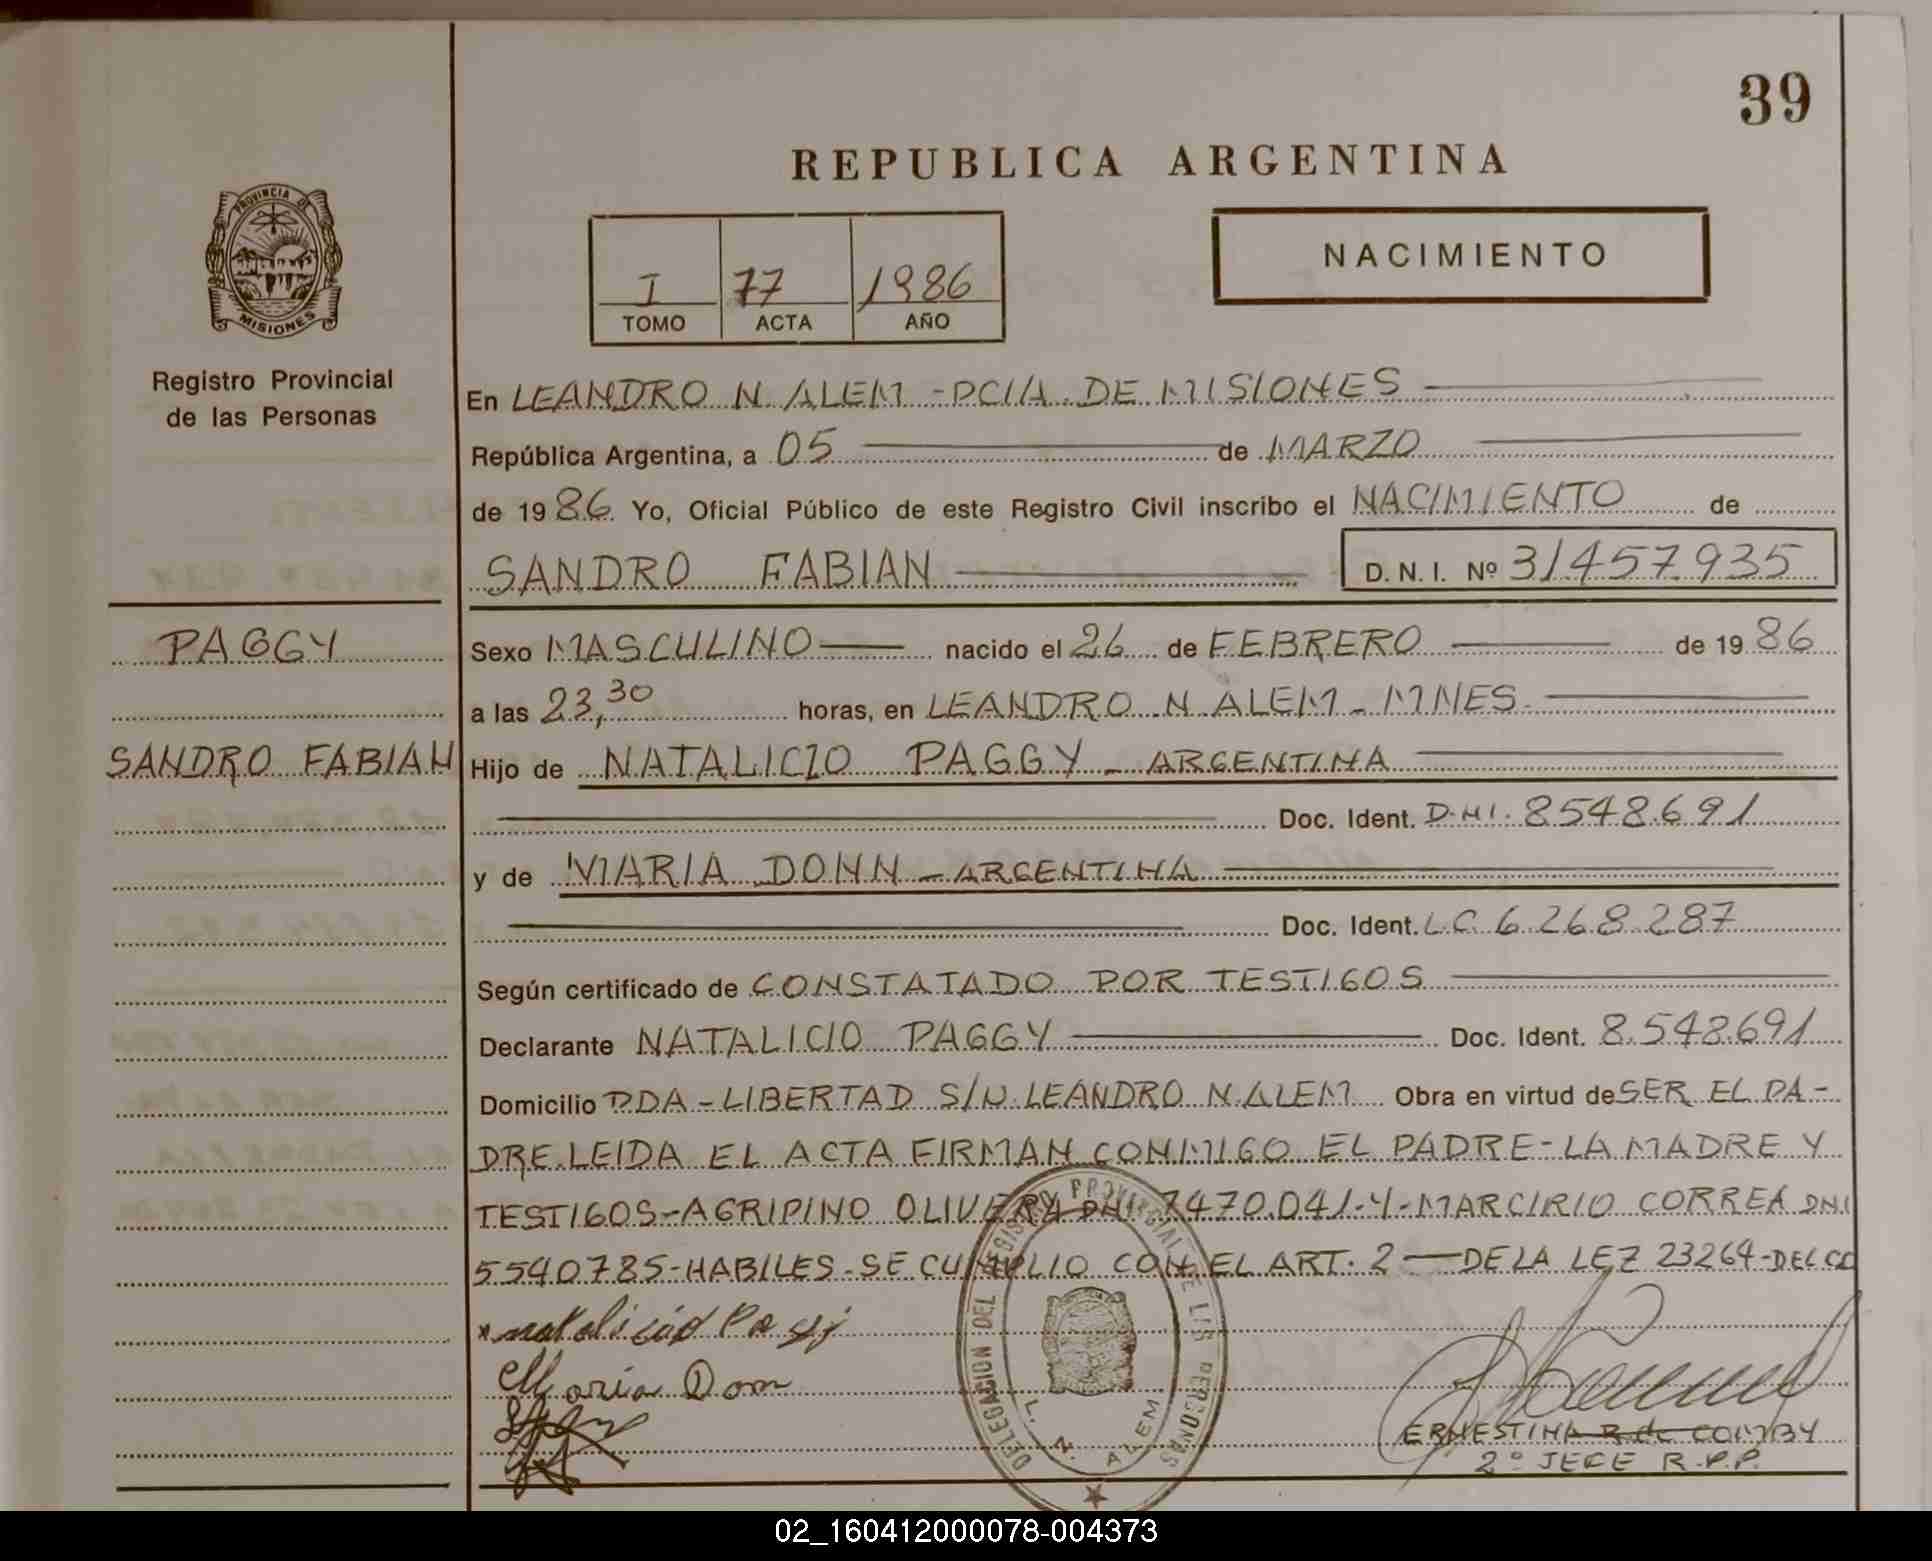 39
REPUBLICA ARGENTINA
PROVINCIA D
MISIONES
I 77 1986
TOMO ACTA AÑO
NACIMIENTO
Registro Provincial
de las Personas
En LEANDRO N. ALEM - PCIA. DE MISIONES
República Argentina, a 05 de MARZO
de 1986 Yo, Oficial Público de este Registro Civil inscribo el NACIMIENTO de
SANDRO FABIAN D.N.I. Nº 31457.935
PAGGY
SANDRO FABIAN
Sexo MASCULINO nacido el 26 de FEBRERO de 1986
a las 23,30 horas, en LEANDRO N. ALEM - MNES.
Hijo de NATALICIO PAGGY - ARGENTINA
Doc. Ident. D.NI. 8548.691
y de MARIA DONN - ARGENTINA
Doc. Ident. L.C. 6.268.287
Según certificado de CONSTATADO POR TESTIGOS
Declarante NATALICIO PAGGY Doc. Ident. 8.548.691
Domicilio PDA - LIBERTAD S/N. LEANDRO N. ALEM Obra en virtud de SER EL PA-
DRE. LEIDA EL ACTA FIRMAN CONMIGO EL PADRE - LA MADRE Y
TESTIGOS - AGRIPINO OLIVERA DNI 7470.041 - Y - MARCIRIO CORREA DNI
5540785 - HABILES - SE CUMPLIO CON EL ART. 2 — DE LA LEZ 23264 - DEL CC
x natalicio Pagi
Maria Don
DELEGACION DEL REGISTRO PROVINCIAL DE LAS PERSONAS
L. N. ALEM
ERNESTINA R. de COMBY
2º JEFE R.P.P.
02_160412000078-004373